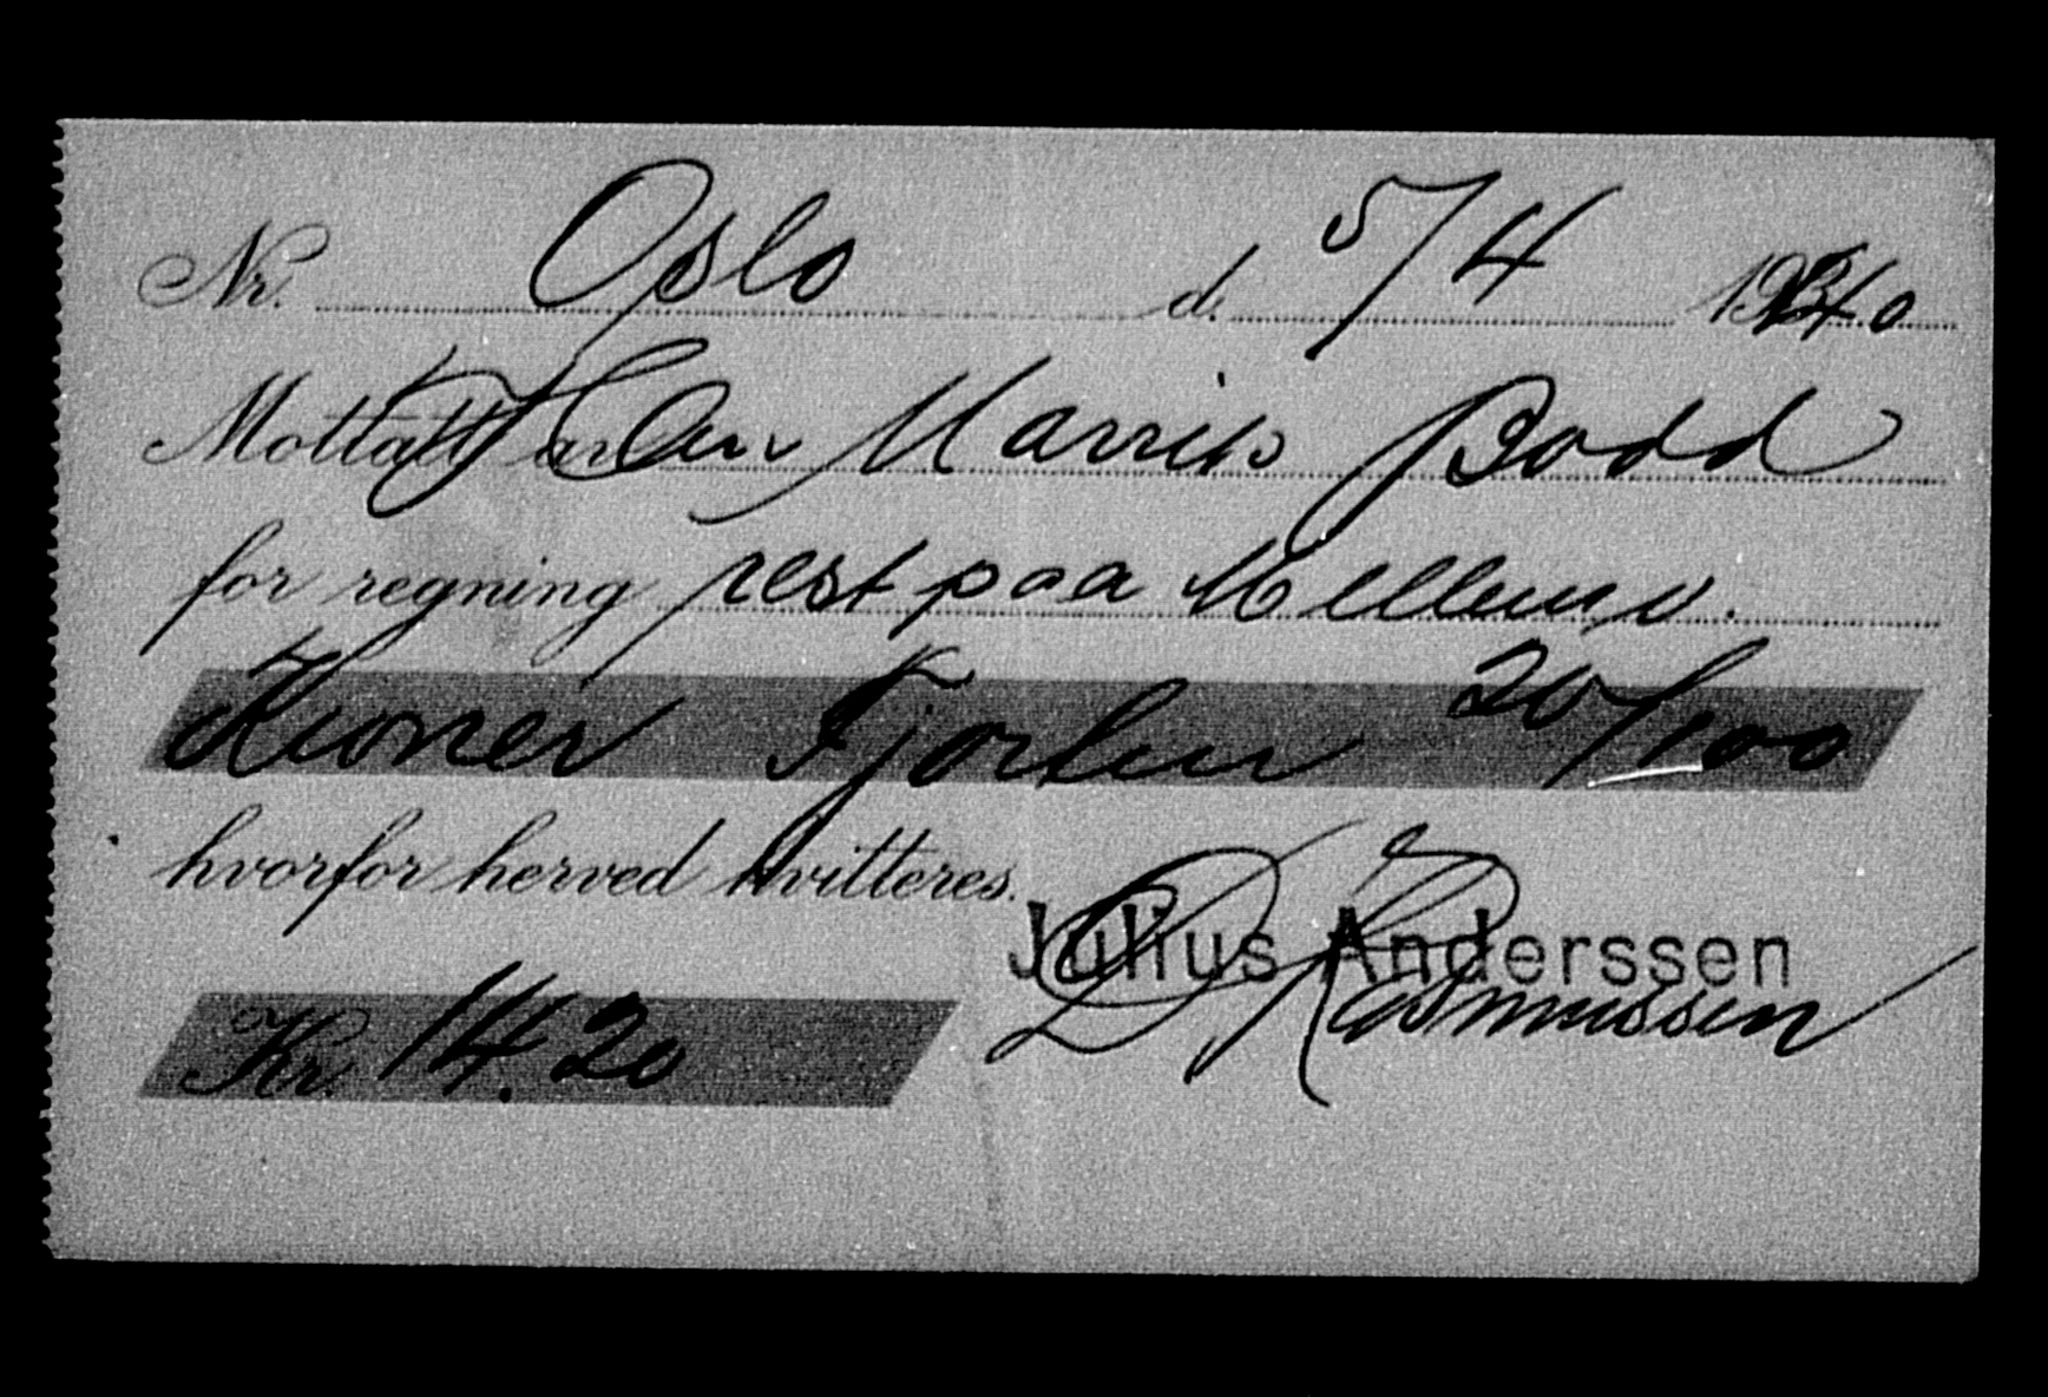 Nr. Oslo d. 5/4 1940
Mottatt av Harris Bodd
for regning rest paa Mellemv.
Kroner Fjorten 20/100
hvorfor herved kvitteres.
Julius Anderssen
Rasmussen
Kr. 14.20